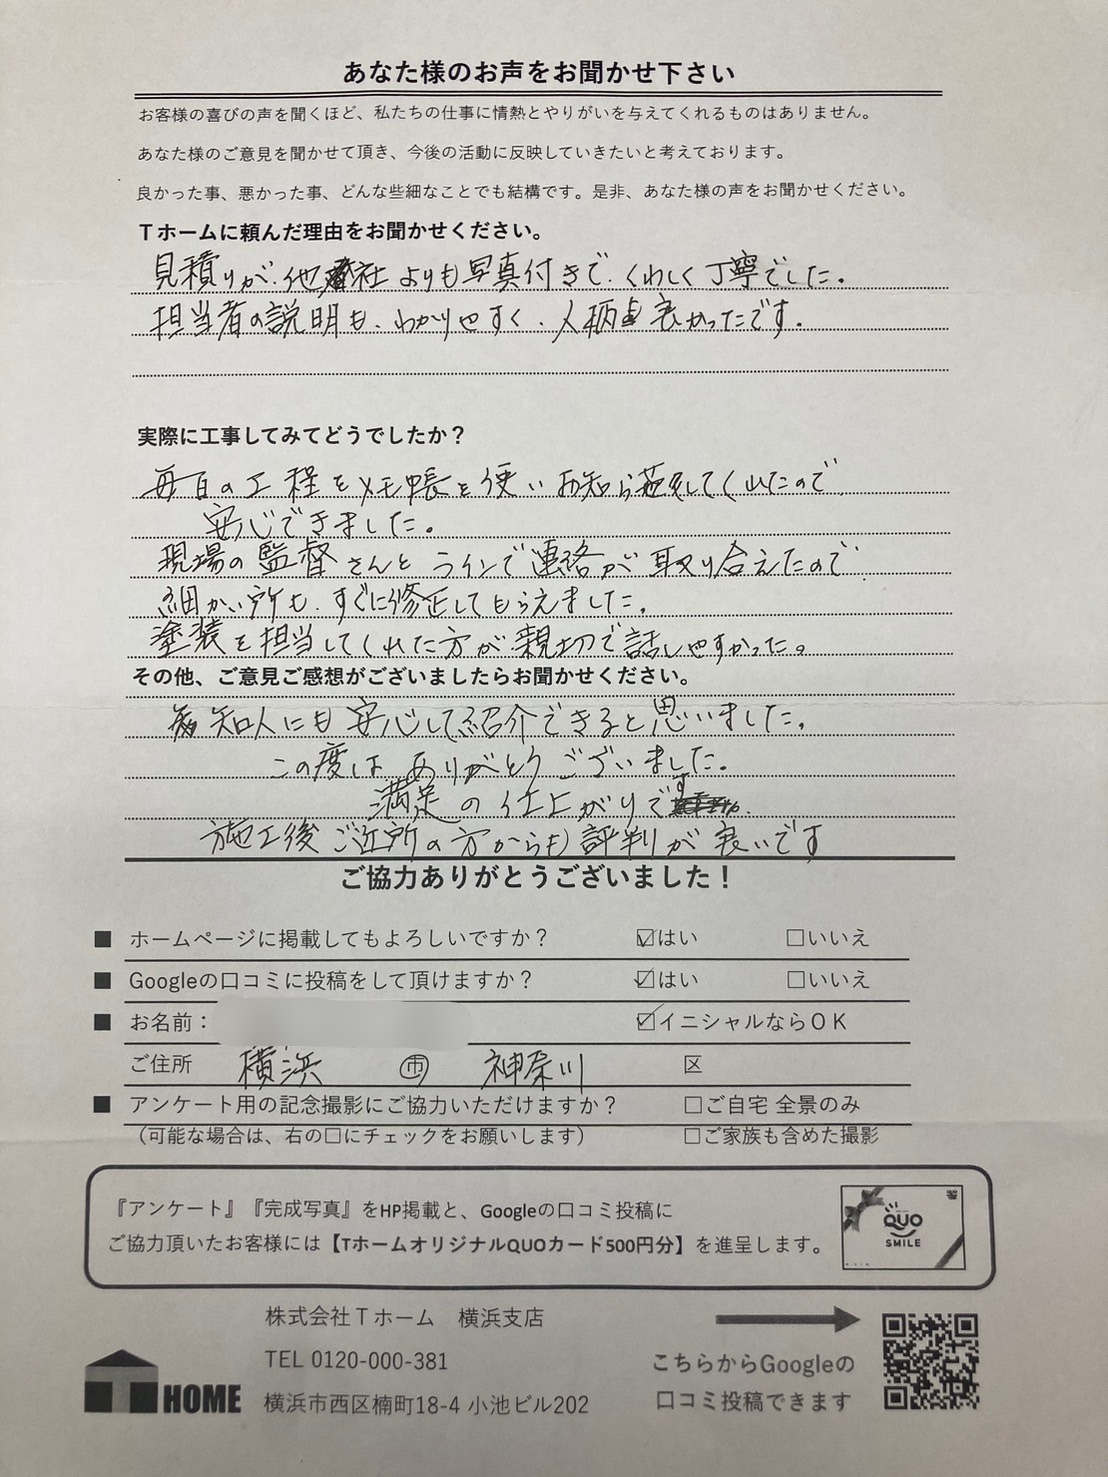 あなた様のお声をお聞かせ下さい
お客様の喜びの声を聞くほど、私たちの仕事に情熱とやりがいを与えてくれるものはありません。
あなた様のご意見を聞かせて頂き、今後の活動に反映していきたいと考えております。
良かった事、悪かった事、どんな些細なことでも結構です。是非、あなた様の声をお聞かせください。
Tホームに頼んだ理由をお聞かせください。
見積りが、他社よりも写真付きで、くわしく丁寧でした。
担当者の説明も、わかりやすく、人柄も良かったです。
実際に工事してみてどうでしたか？
毎日の工程をメモ帳を使いお知らせしてくれたので、
安心できました。
現場の監督さんとラインで連絡が取り合えたので
細かい所も、すぐに修正してもらえました。
塗装を担当してくれた方が親切で話しやすかった。
その他、ご意見ご感想がございましたらお聞かせください。
知人にも安心して紹介できると思いました。
この度はありがとうございました。
満足の仕上がりです
施工後ご近所の方からも評判が良いです
ご協力ありがとうございました！
■ ホームページに掲載してもよろしいですか？ ☑はい □いいえ
■ Googleの口コミに投稿をして頂けますか？ ☑はい □いいえ
■ お名前： ☑イニシャルならＯＫ
ご住所 横浜 市 神奈川 区
■ アンケート用の記念撮影にご協力いただけますか？ □ご自宅 全景のみ
（可能な場合は、右の□にチェックをお願いします） □ご家族も含めた撮影
『アンケート』『完成写真』をHP掲載と、Googleの口コミ投稿に
ご協力頂いたお客様には【TホームオリジナルQUOカード500円分】を進呈します。
QUO
SMILE
株式会社Ｔホーム 横浜支店
TEL 0120-000-381
横浜市西区楠町18-4 小池ビル202
T HOME
こちらからGoogleの
口コミ投稿できます